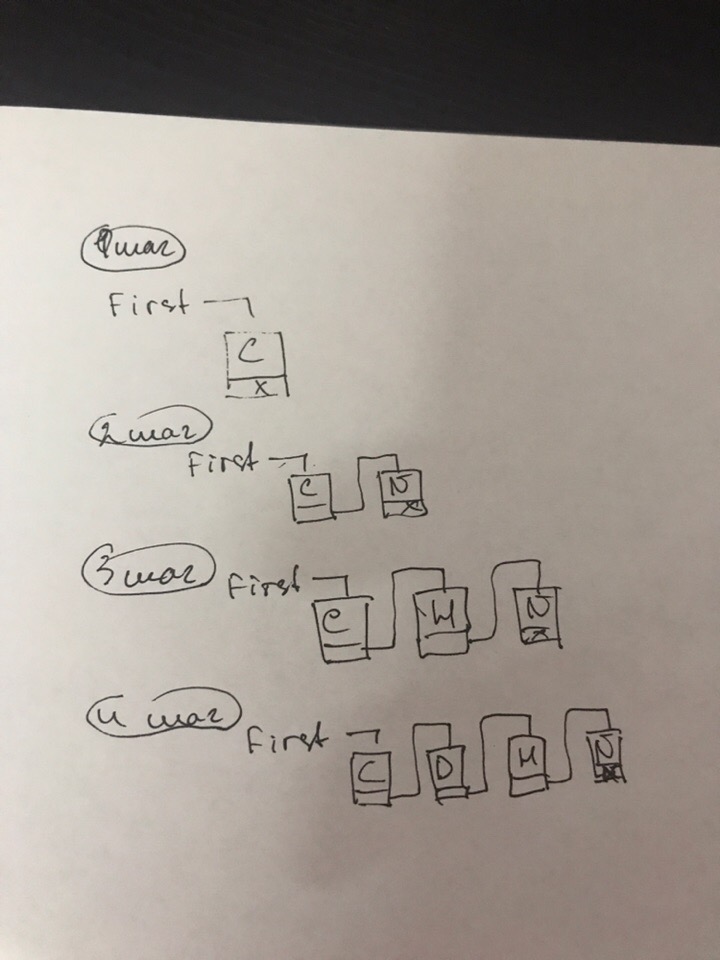 1 шаг
First
C
X
2 шаг
First C N
X
3 шаг First
C H N
X
4 шаг First
C D H N